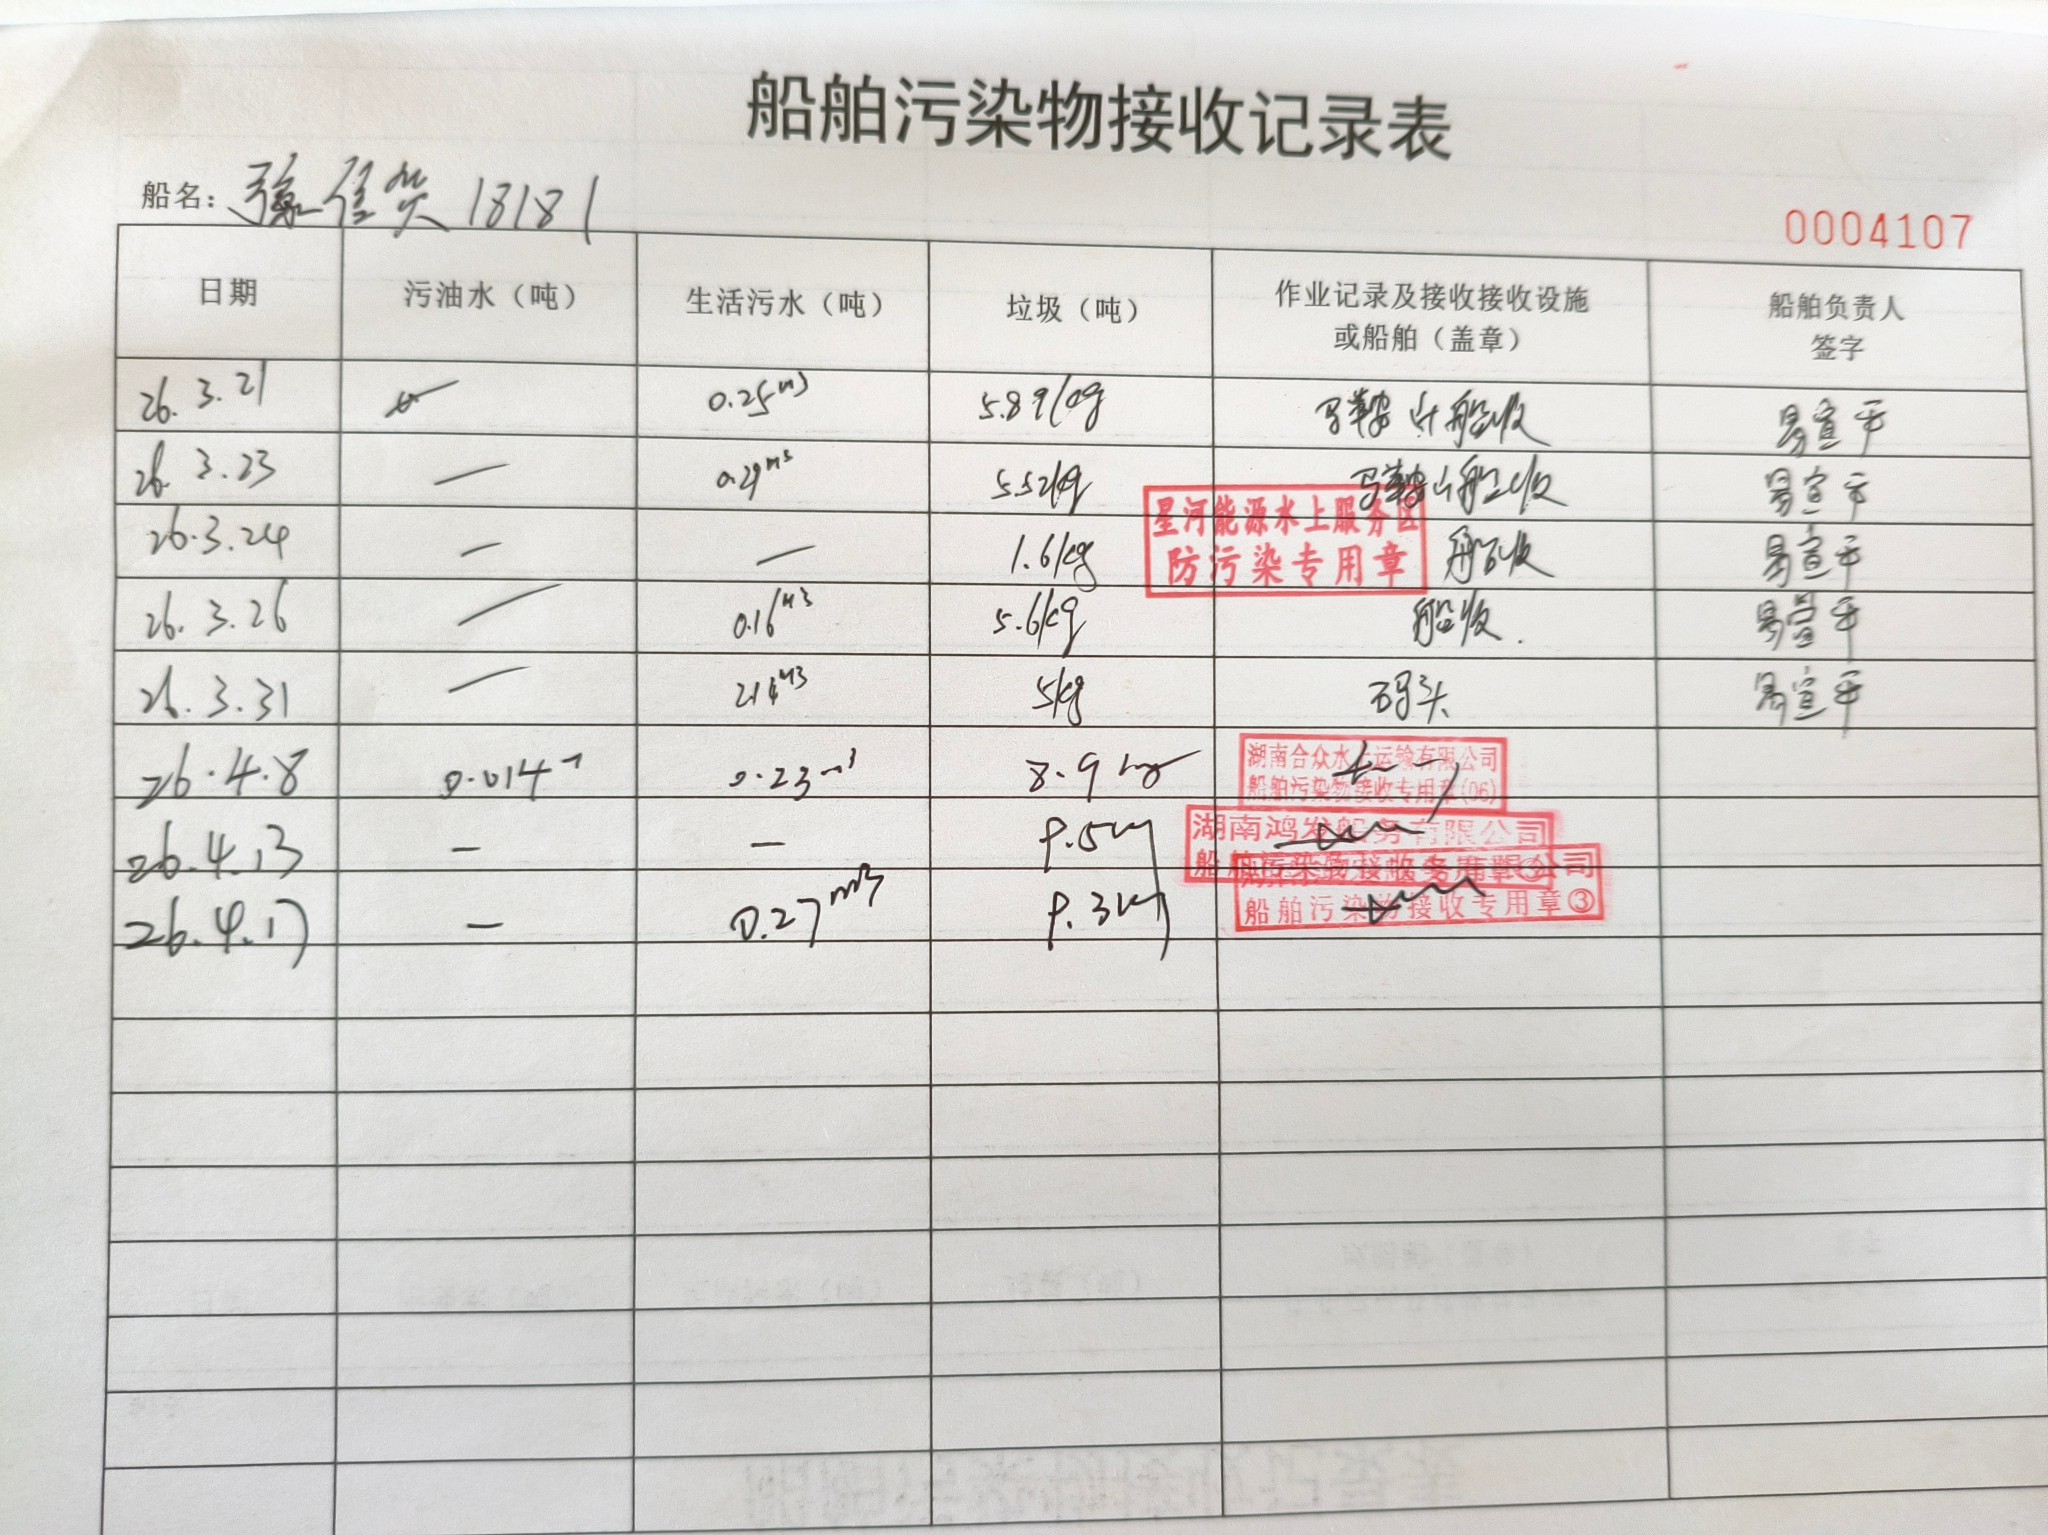 船舶污染物接收记录表
船名: 18181
0004107
日期 污油水（吨） 生活污水（吨） 垃圾（吨） 作业记录及接收接收设施或船舶（盖章） 船舶负责人签字
26.3.21 0.25m3 5.89kg 马鞍山船收 易宣干
26.3.23 — 0.29m3 5.52kg 马鞍山船收 易宣干
星河能源水上服务区
防污染专用章
26.3.24 — — 1.6kg 船收 易宣干
26.3.26 — 0.16m3 5.6kg 船收. 易宣干
26.3.31 — m3 5kg 码头 易宣干
26.4.8 0.014 0.23m3 8.9kg
湖南合众水上运输有限公司
船舶污染物接收专用章(06)
26.4.13 — — 9.5kg
湖南鸿发船务有限公司
船舶污染物接收专用章③
26.4.17 — 0.27m3 9.3kg
公司
船舶污染物接收专用章③